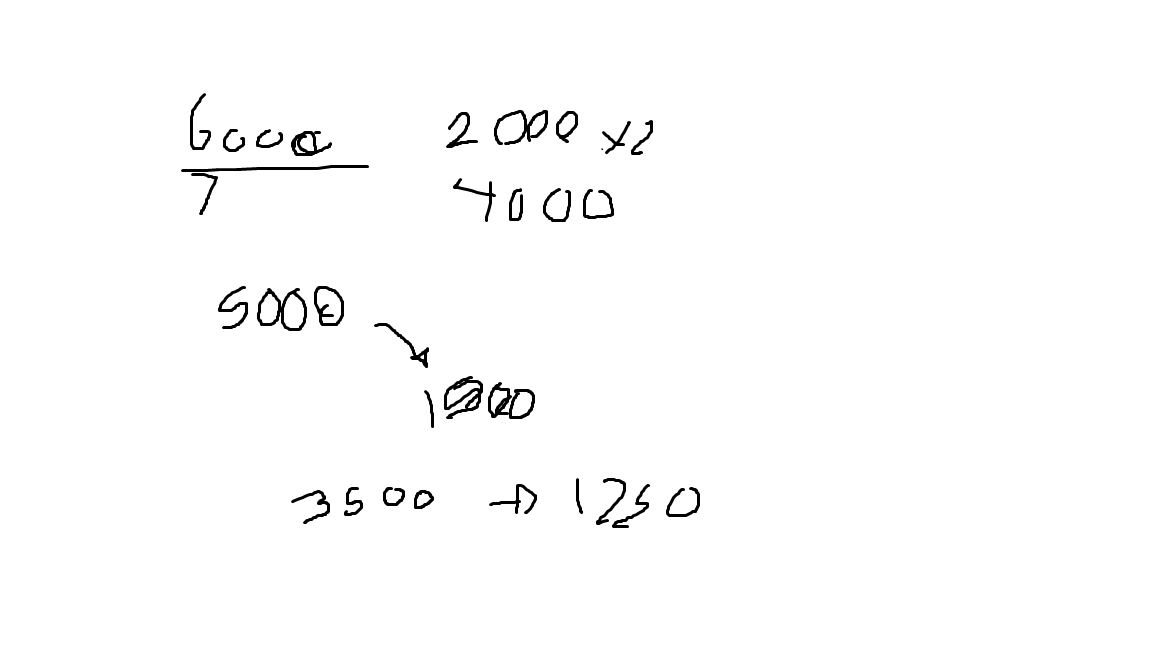 6000
7
2000 x2
4000
5000
1000
3500 → 1250